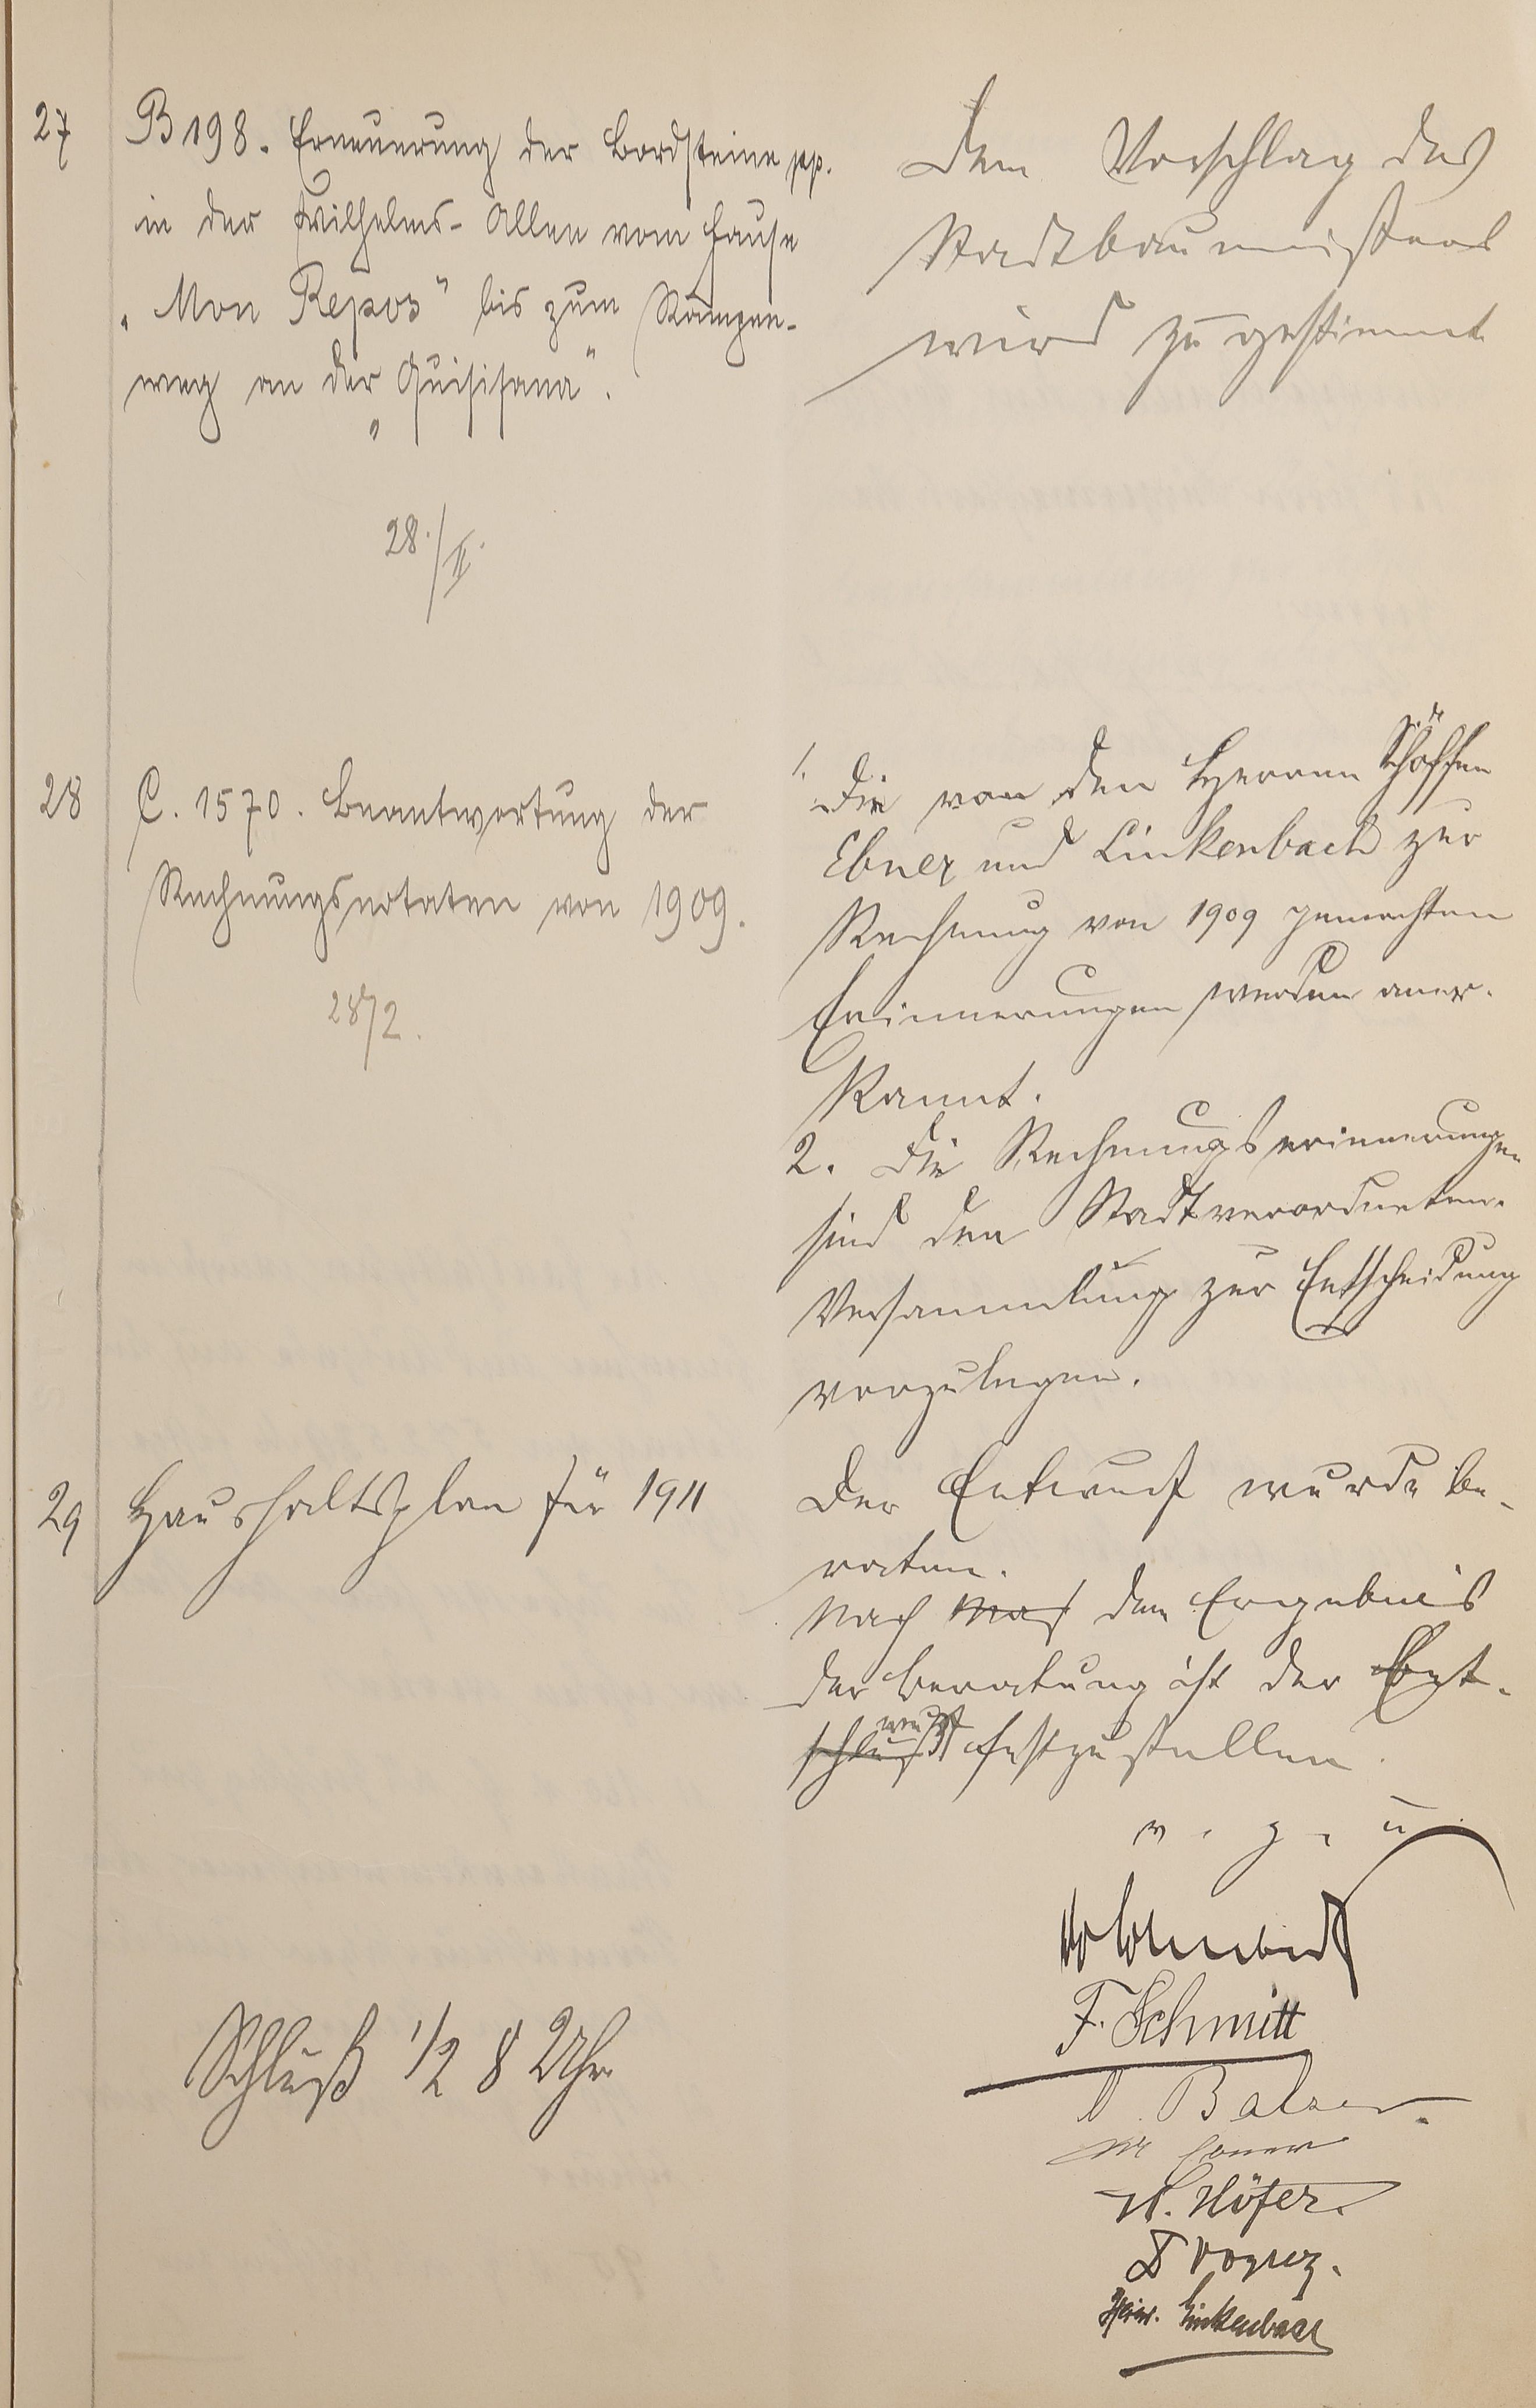 27
B 198. Erneuerung der Bordsteine pp.
in der Wilhelms-Allee vom Hause
„Mon Repos" bis zum Rampen-
weg an der „Quisisana".
28./II.
Dem Vorschlag des
Stadtbaumeisters
wird zugestimmt
28
C. 1570. Beantwortung der
Rechnungsnotaten von 1909.
28/2.
1. Die von den Herren Schöffen
Ebner und Linkenbach zur
Rechnung von 1909 gemachten
Erinnerungen werden aner-
kannt.
2. Die Rechnungserinnerungen
sind der Stadtverordneten-
Versammlung zur Entscheidung
vorzulegen.
29
Haushaltsplan für 1911
Der Entwurf wurde be-
raten.
Nach dem Ergebnis
der Beratung ist der Ent-
wurf festzustellen.
v. g. u.
F. Schmitt
Balzer.
Ebner
H. Höfer.
Schluß 1/2 8 Uhr
Heinr. Linkenbach